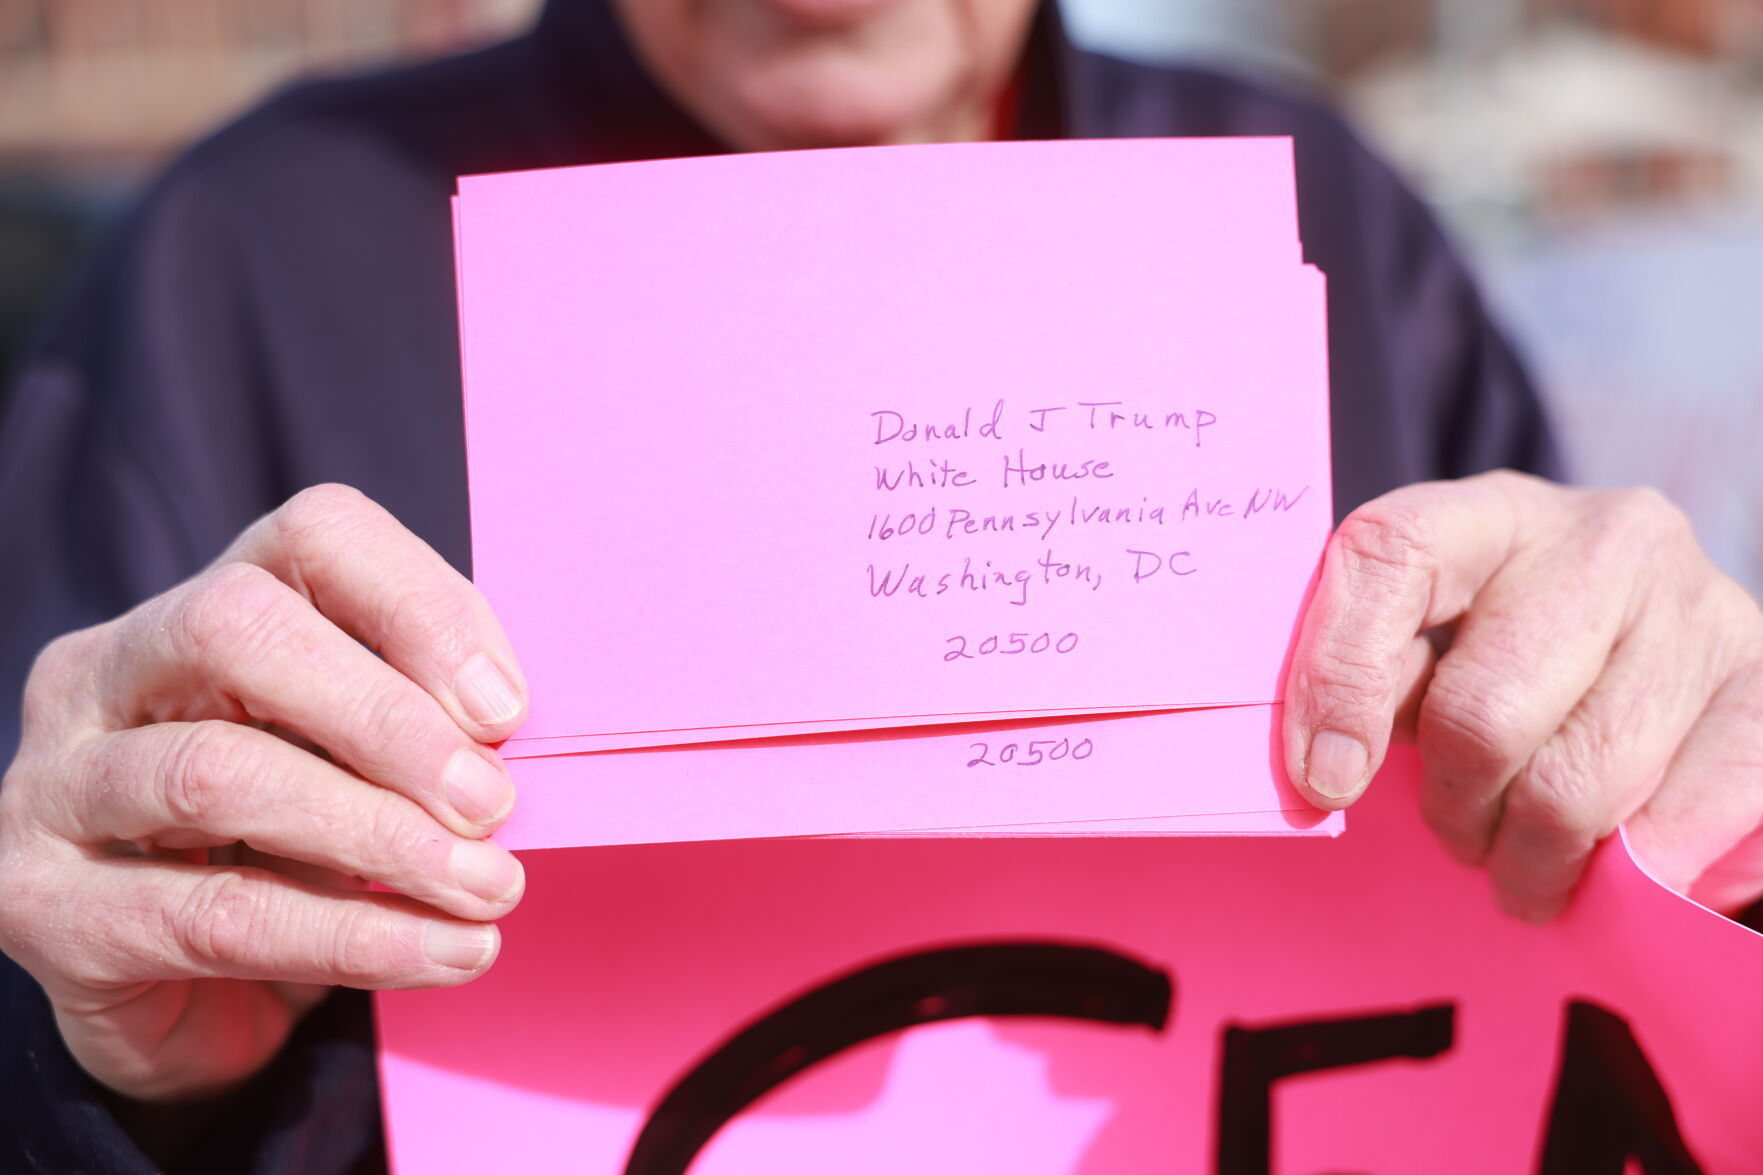 Donald J Trump
White House
1600 Pennsylvania Ave NW
Washington, DC
20500
20500